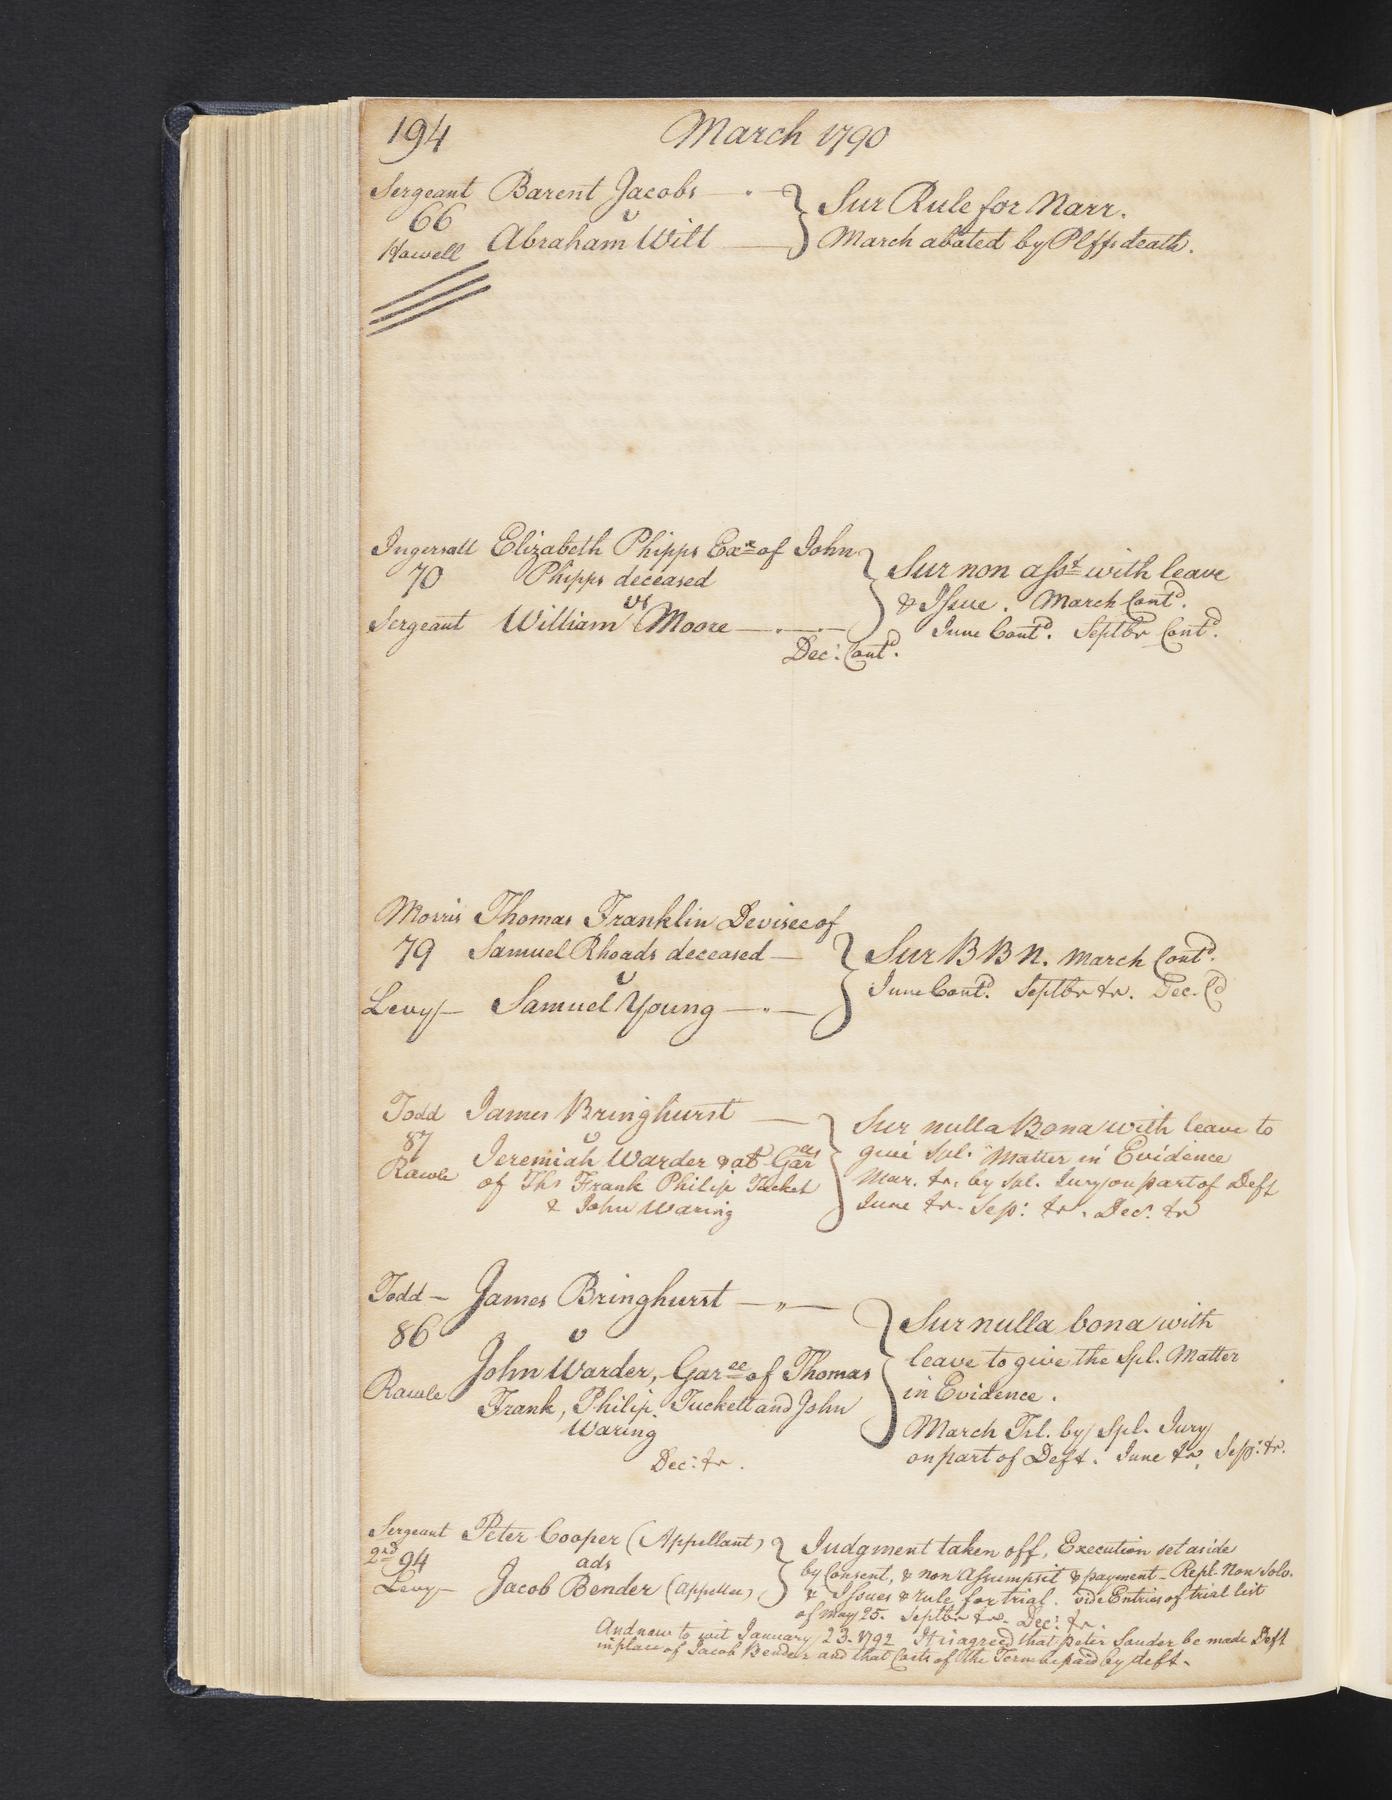 194 March 1790
Sergeant Barent Jacobs
66 v
Howell Abraham Wilt
Sur Rule for Narr.
March abated by Plffs death.
Ingersoll Elizabeth Phipps Exx of John
70 Phipps deceased
vs
Sergeant William Moore
Sur non asst with leave
& Issue. March Contd.
June Contd. Septbr Contd.
Decr. Contd.
Morris Thomas Franklin Devisee of
79 Samuel Rhoads deceased
v
Levy Samuel Young
Sur B B N. March Contd.
June Contd. Septbr tr. Dec. Cd
Todd James Bringhurst
87 v
Rawle Jeremiah Warder & al Garees
of Ths Frank Philip Tucket
& John Waring
Sur nulla Bona with leave to
give Spl. Matter in Evidence
Mar. tr. by Spl. Jury on part of Deft
June tr. Sepr: tr. Decr. tr
Todd James Bringhurst
86 v
Rawle John Warder, Garee of Thomas
Frank, Philip Tuckett and John
Waring
Decr: tr.
Sur nulla bona with
leave to give the Spl. Matter
in Evidence.
March Trl. by Spl. Jury
on part of Deft. June tr. Sepr: tr.
Sergeant Peter Cooper (Appellant)
2nd 94 ads
Levy Jacob Bender (appellee)
Judgment taken off, Execution set aside
by Consent, & non Assumpsit & payment - Repl. Non Solv.
& Issues & rule for trial. vide Entries of trial list
of may 25. Septbr tr. Dec: tr.
And now to wit January 23. 1792 It is agreed that Peter Souder be made Deft
in place of Jacob Bender and that Costs of the Term be paid by deft.